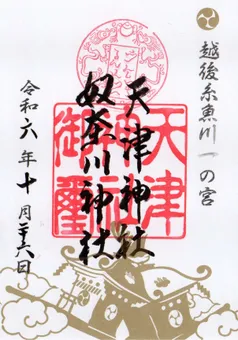 越後糸魚川一の宮
天津神社
奴奈川神社
令和六年十月二十六日
天津
神社
御璽